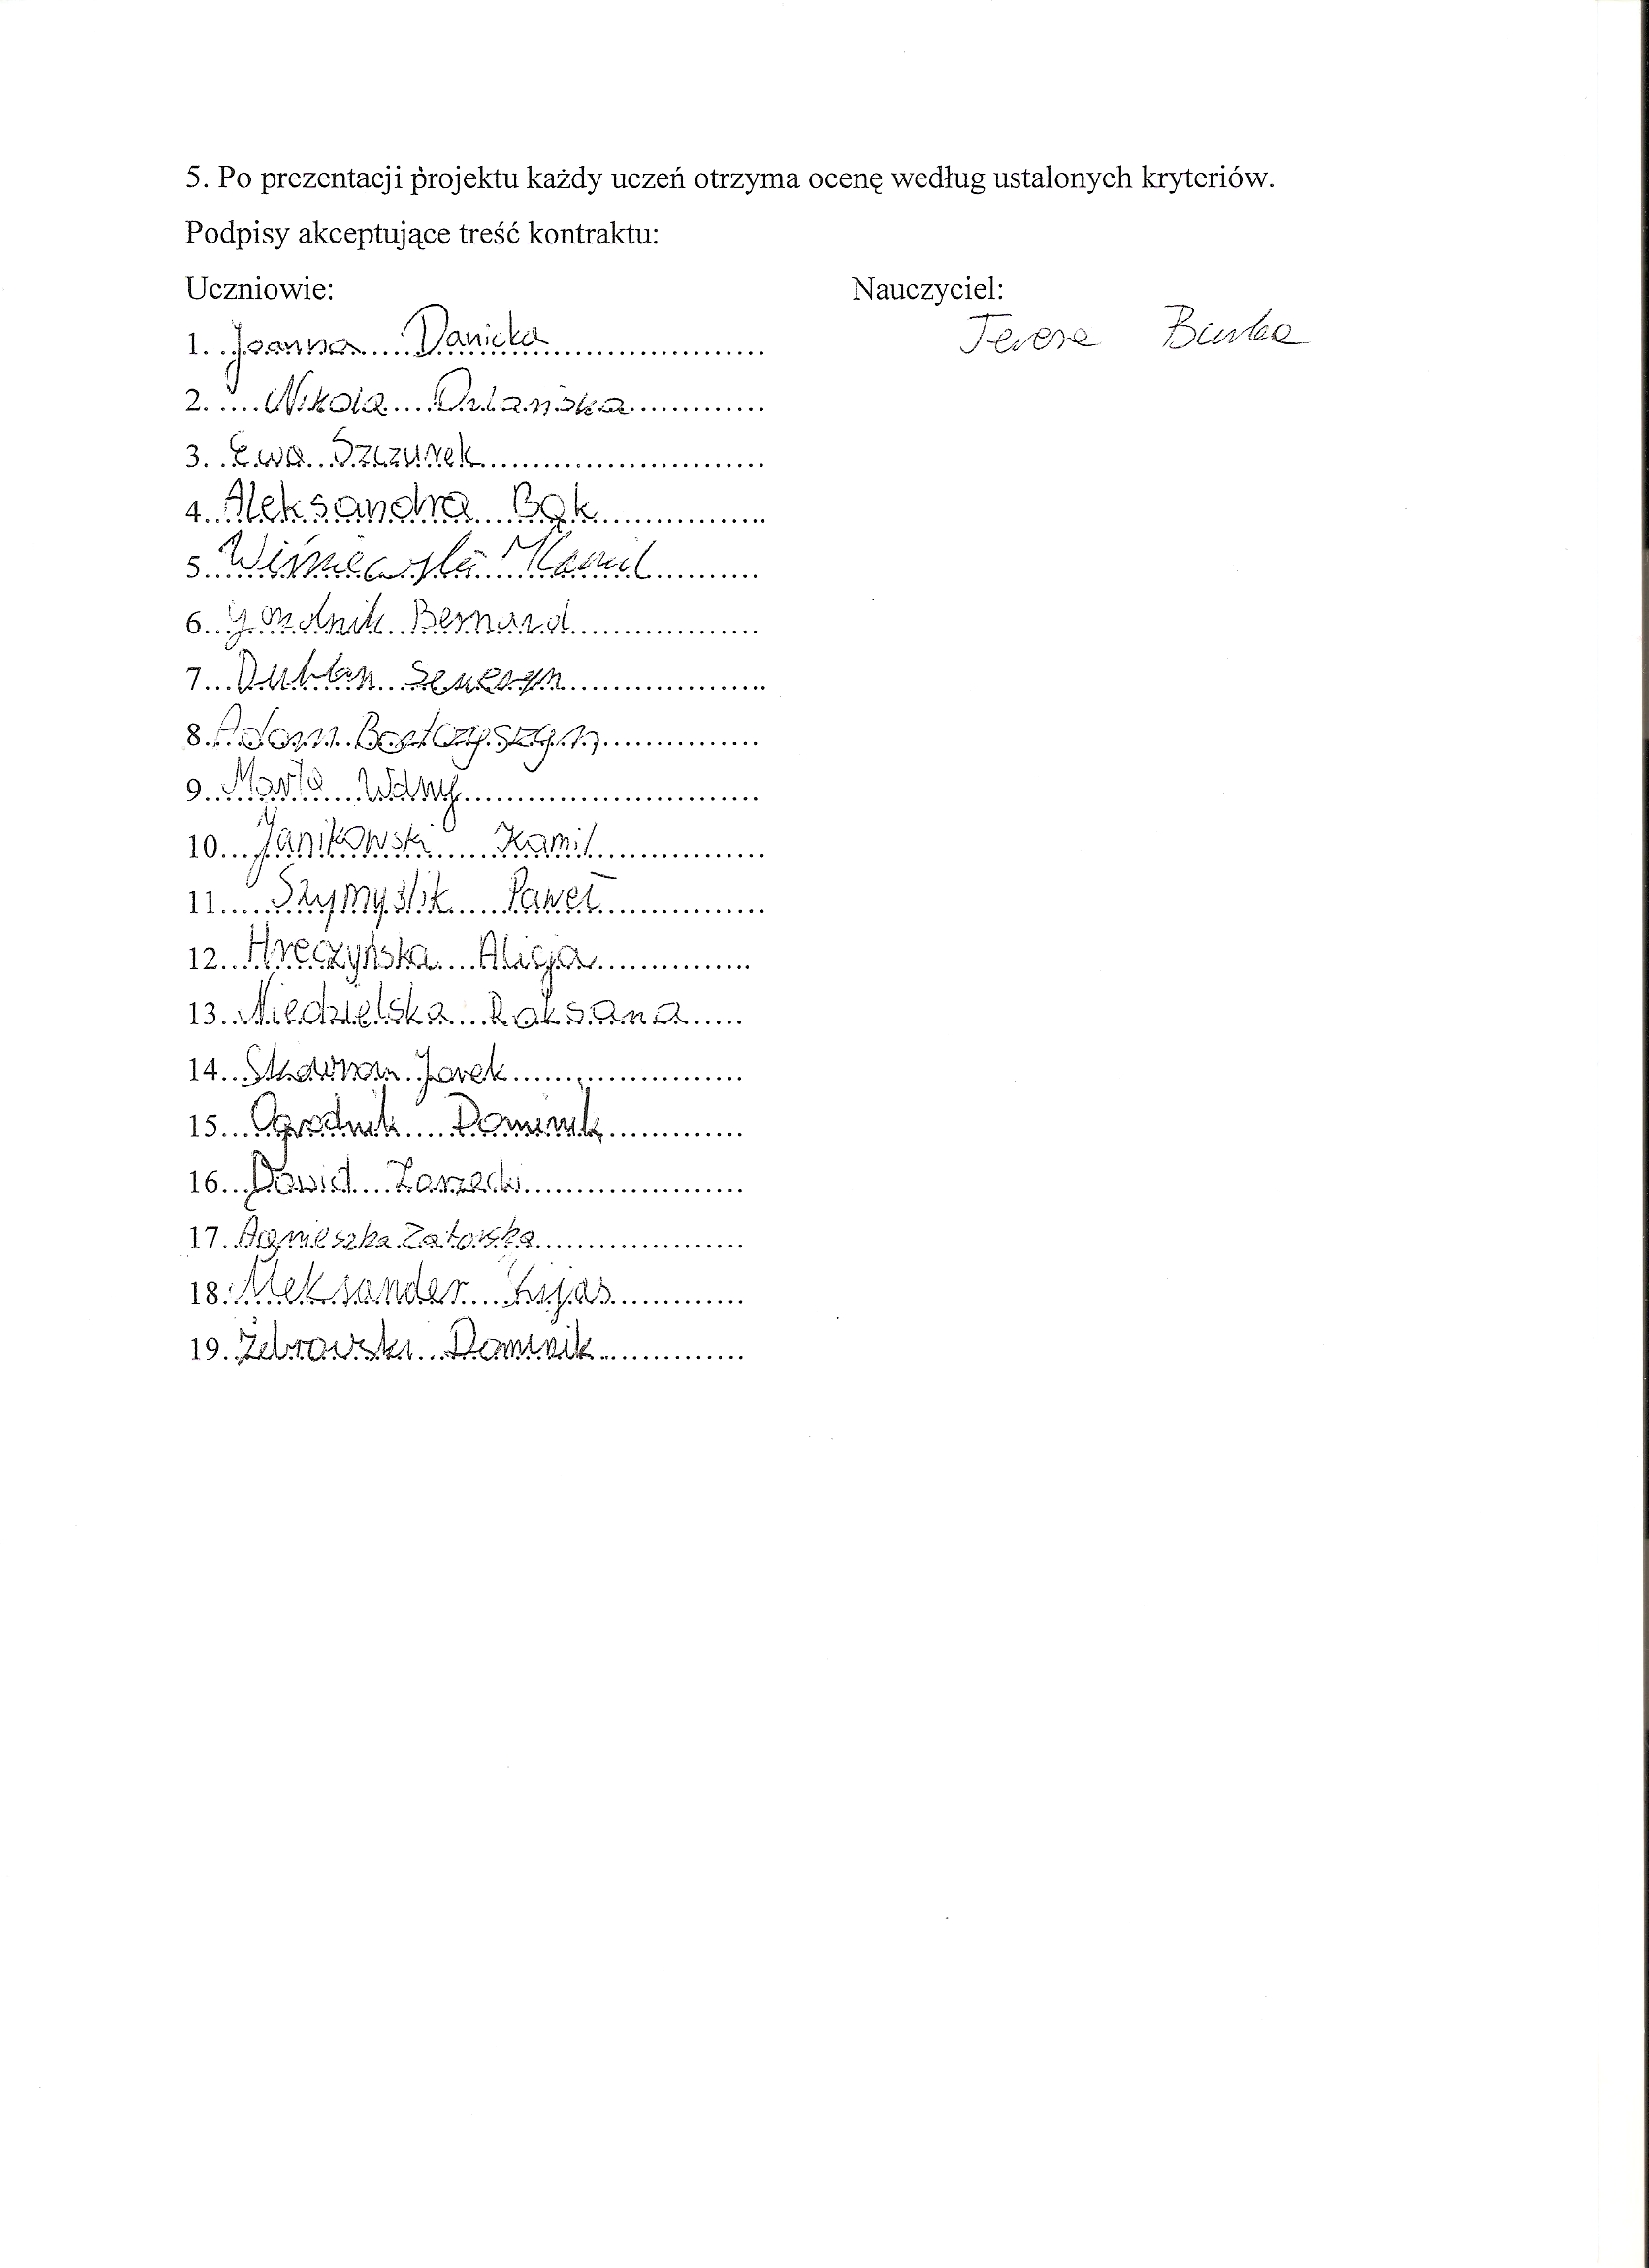 5. Po prezentacji projektu każdy uczeń otrzyma ocenę według ustalonych kryteriów.
Podpisy akceptujące treść kontraktu:
Uczniowie: Nauczyciel:
1. Joanna Danicka Teresa
2. Nikola
3. Ewa Szczurek
4. Aleksandra Bąk
5. Kamil
6. Bernard
7. Seweryn
8. Adam
9. Marta Wdowy
10. Janikowski Kamil
11. Szymyślik Paweł
12. Hreczyńska Alicja
13. Niedzielska Roksana
14. Jarek
15. Ogrodnik Dominik
16. Dawid Zarzecki
17. Agnieszka Zatorska
18. Aleksander Kijas
19. Żebrowski Dominik